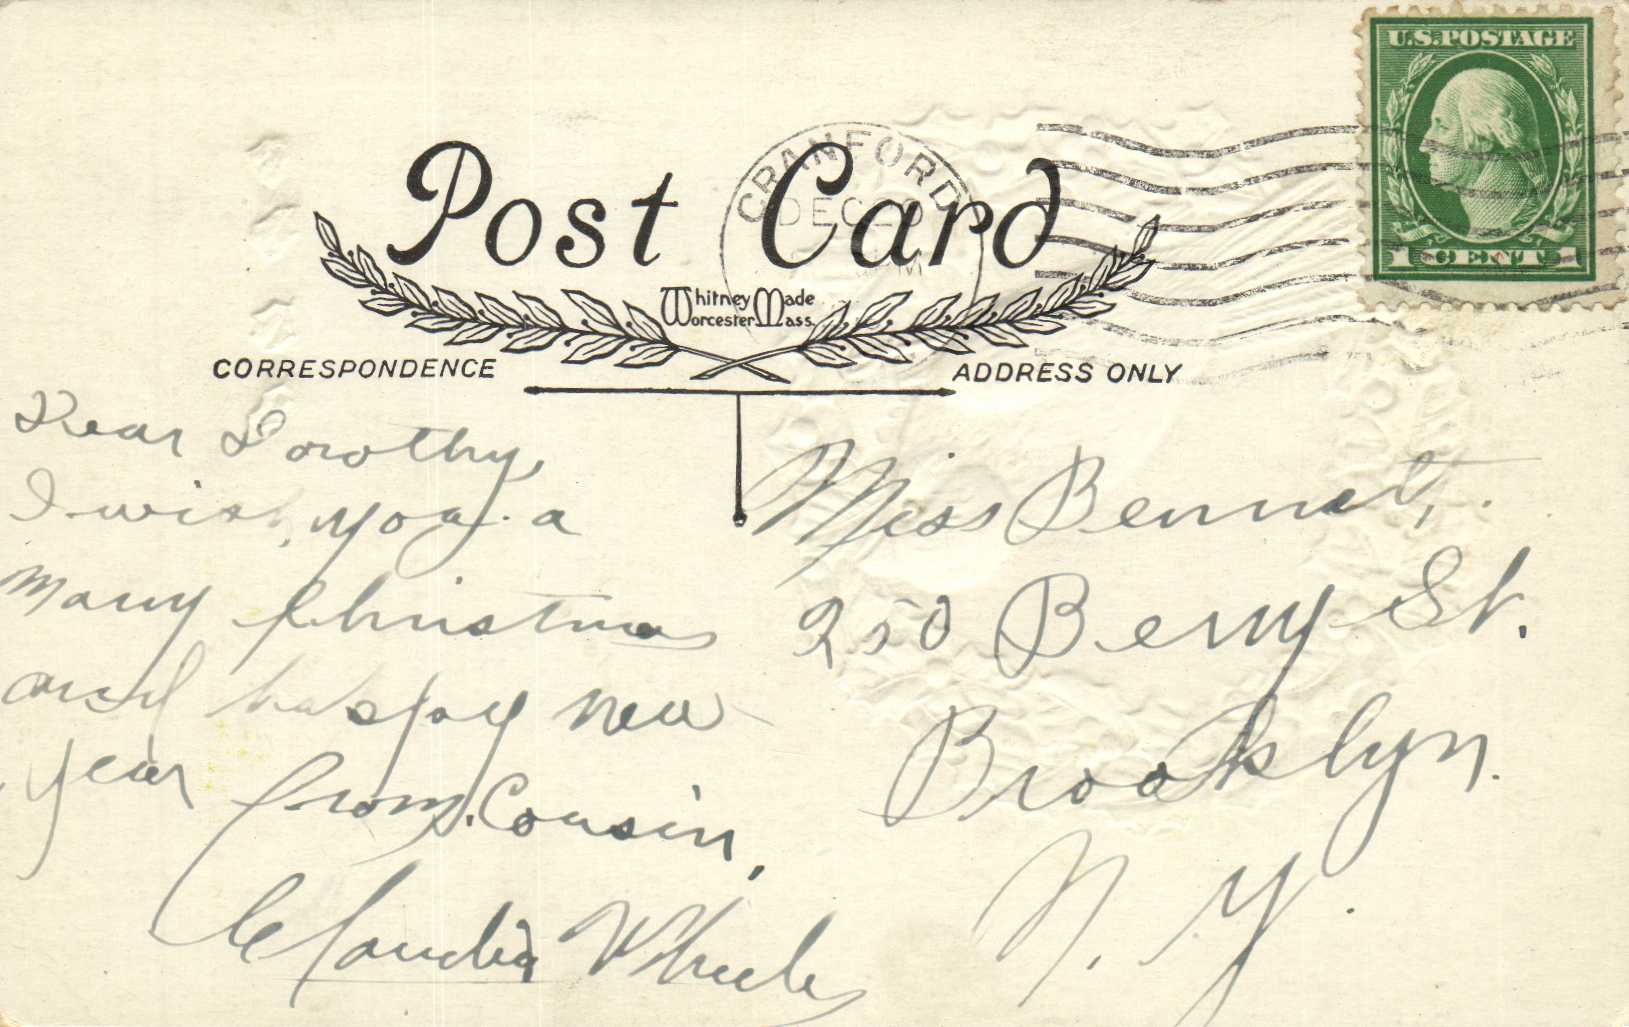 U.S. POSTAGE
1 CENT 1
CRANFORD
DEC
M
Post Card
Whitney Made
Worcester Mass.
CORRESPONDENCE
ADDRESS ONLY
Dear Dorothy,
I wish, you a
Marry Christmas
and happy new
year
from. Cousin,
Claudia
Miss Bennet,
250 Berry St.
Brooklyn.
N. Y.